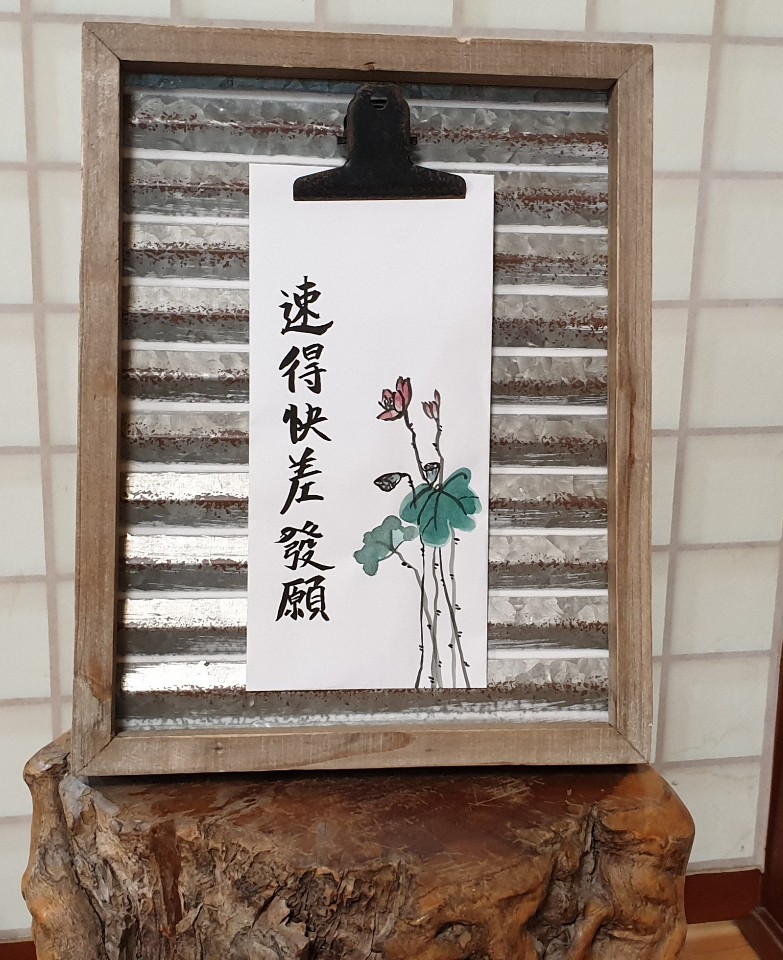 速得快差發願